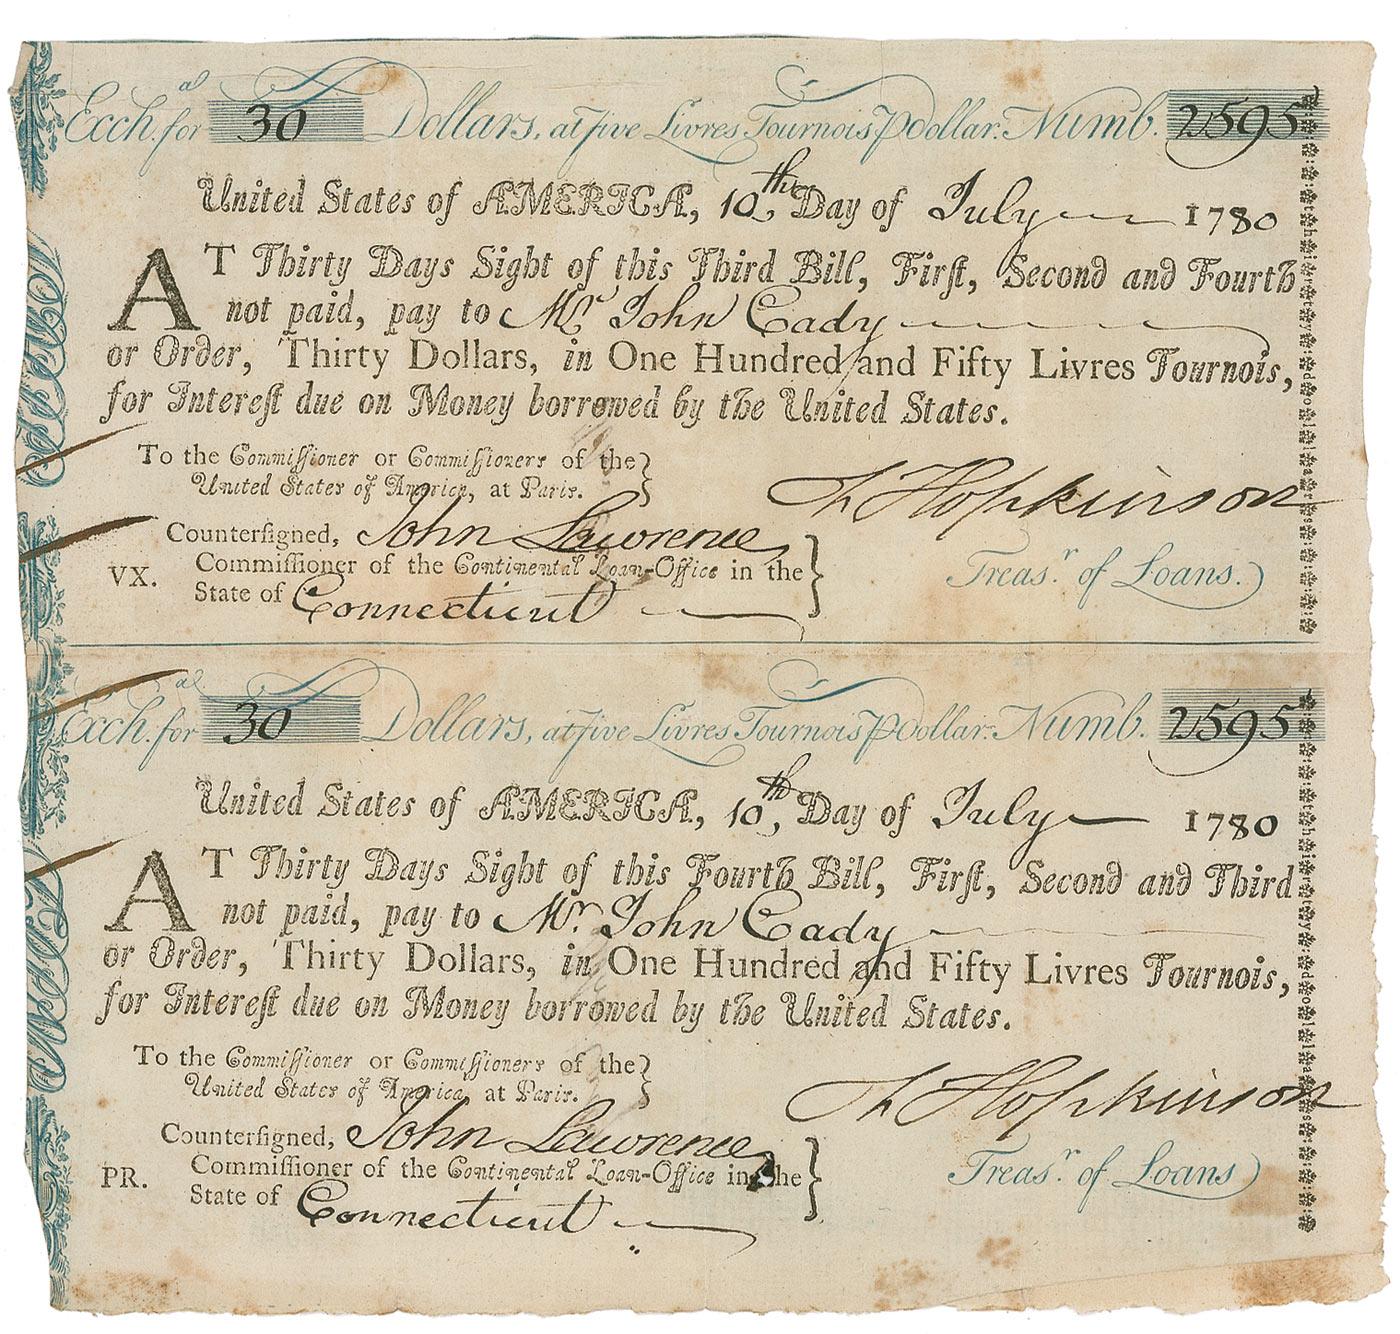 Exch.al for 30 Dollars, at five Livres Tournois ⅌ Dollar. Numb. 2595
United States of AMERICA, 10th Day of July 1780
AT Thirty Days Sight of this Third Bill, Firſt, Second and Fourth
not paid, pay to Mr John Cady
or Order, Thirty Dollars, in One Hundred and Fifty Livres Tournois,
for Intereſt due on Money borrowed by the United States.
To the Commiſſioner or Commiſſioners of the
United States of America, at Paris.
F Hopkinson
Counterſigned, John Lawrence
Treas.r of Loans.
VX. Commiſſioner of the Continental Loan-Office in the
State of Connecticut
:thirty:dollars:
Exch.al for 30 Dollars, at five Livres Tournois ⅌ Dollar. Numb. 2595
United States of AMERICA, 10th Day of July 1780
AT Thirty Days Sight of this Fourth Bill, Firſt, Second and Third
not paid, pay to Mr. John Cady
or Order, Thirty Dollars, in One Hundred and Fifty Livres Tournois,
for Intereſt due on Money borrowed by the United States.
To the Commiſſioner or Commiſſioners of the
United States of America, at Paris.
F Hopkinson
Counterſigned, John Lawrence
Treas.r of Loans
PR. Commiſſioner of the Continental Loan-Office in the
State of Connecticut
:thirty:dollars: